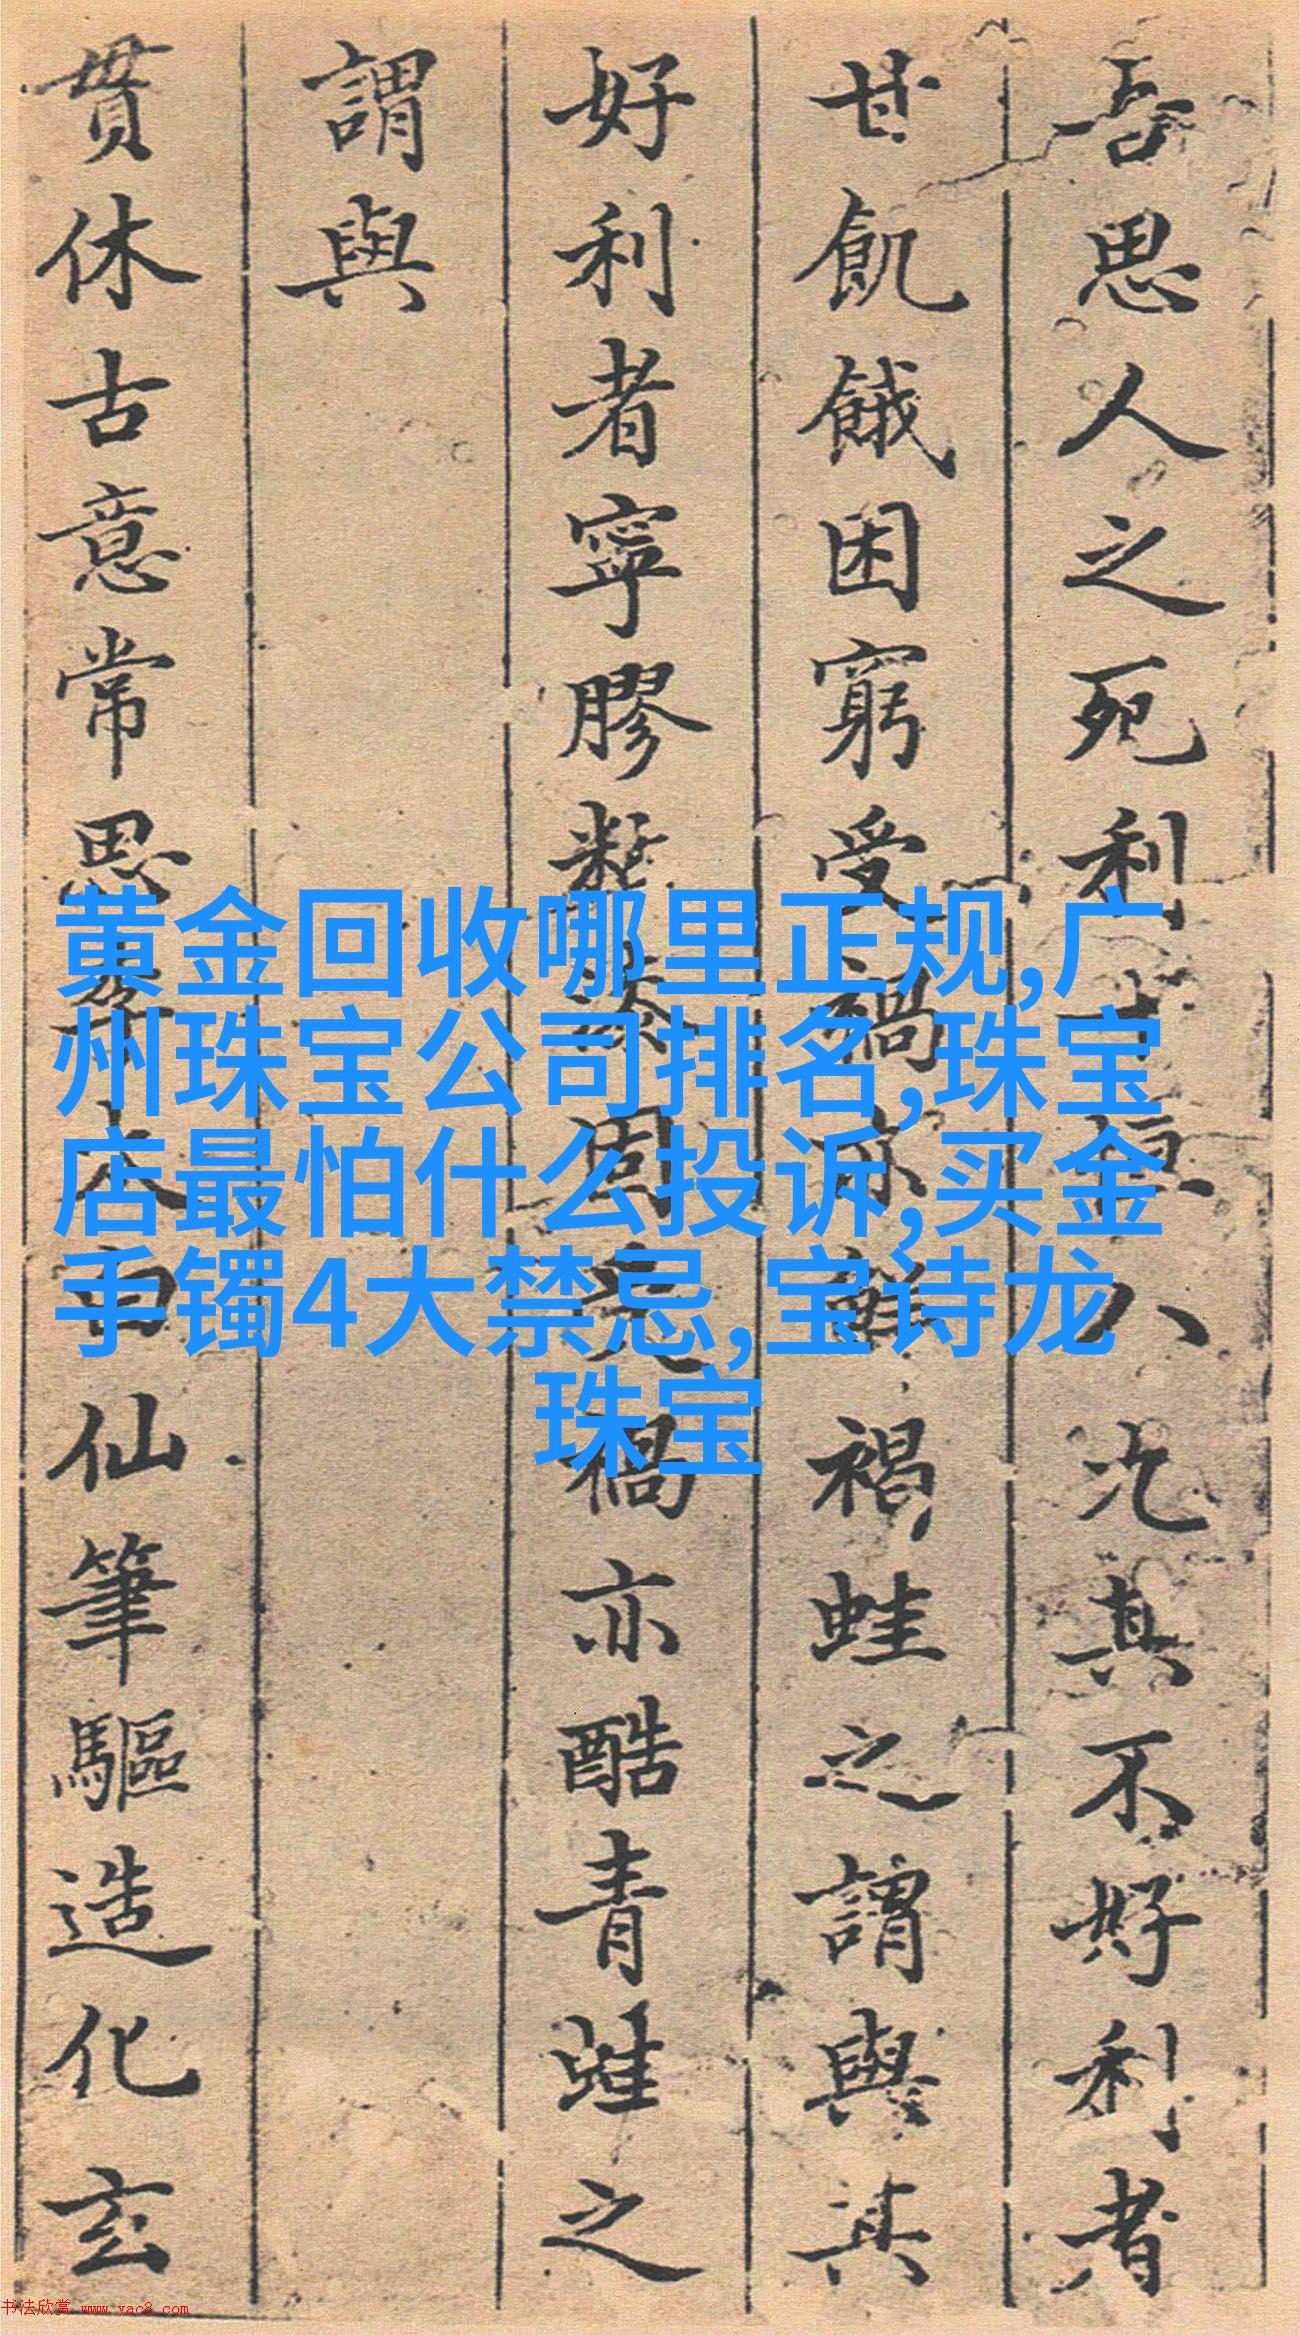 吾思人之死利十恒八㳄其不好利者
甘飢餓困窮受禍亦鮮禍蛙之謂與其
好利者寧膠黏湊固充禍亦酷青蛙之
謂與
貫休古意常思李太白仙筆驅造化玄
黄金回收哪里正规,广
州珠宝公司排名,珠宝
店最怕什么投诉,买金
手镯4大禁忌,宝诗龙
珠宝
书法欣赏 www.yac8.com